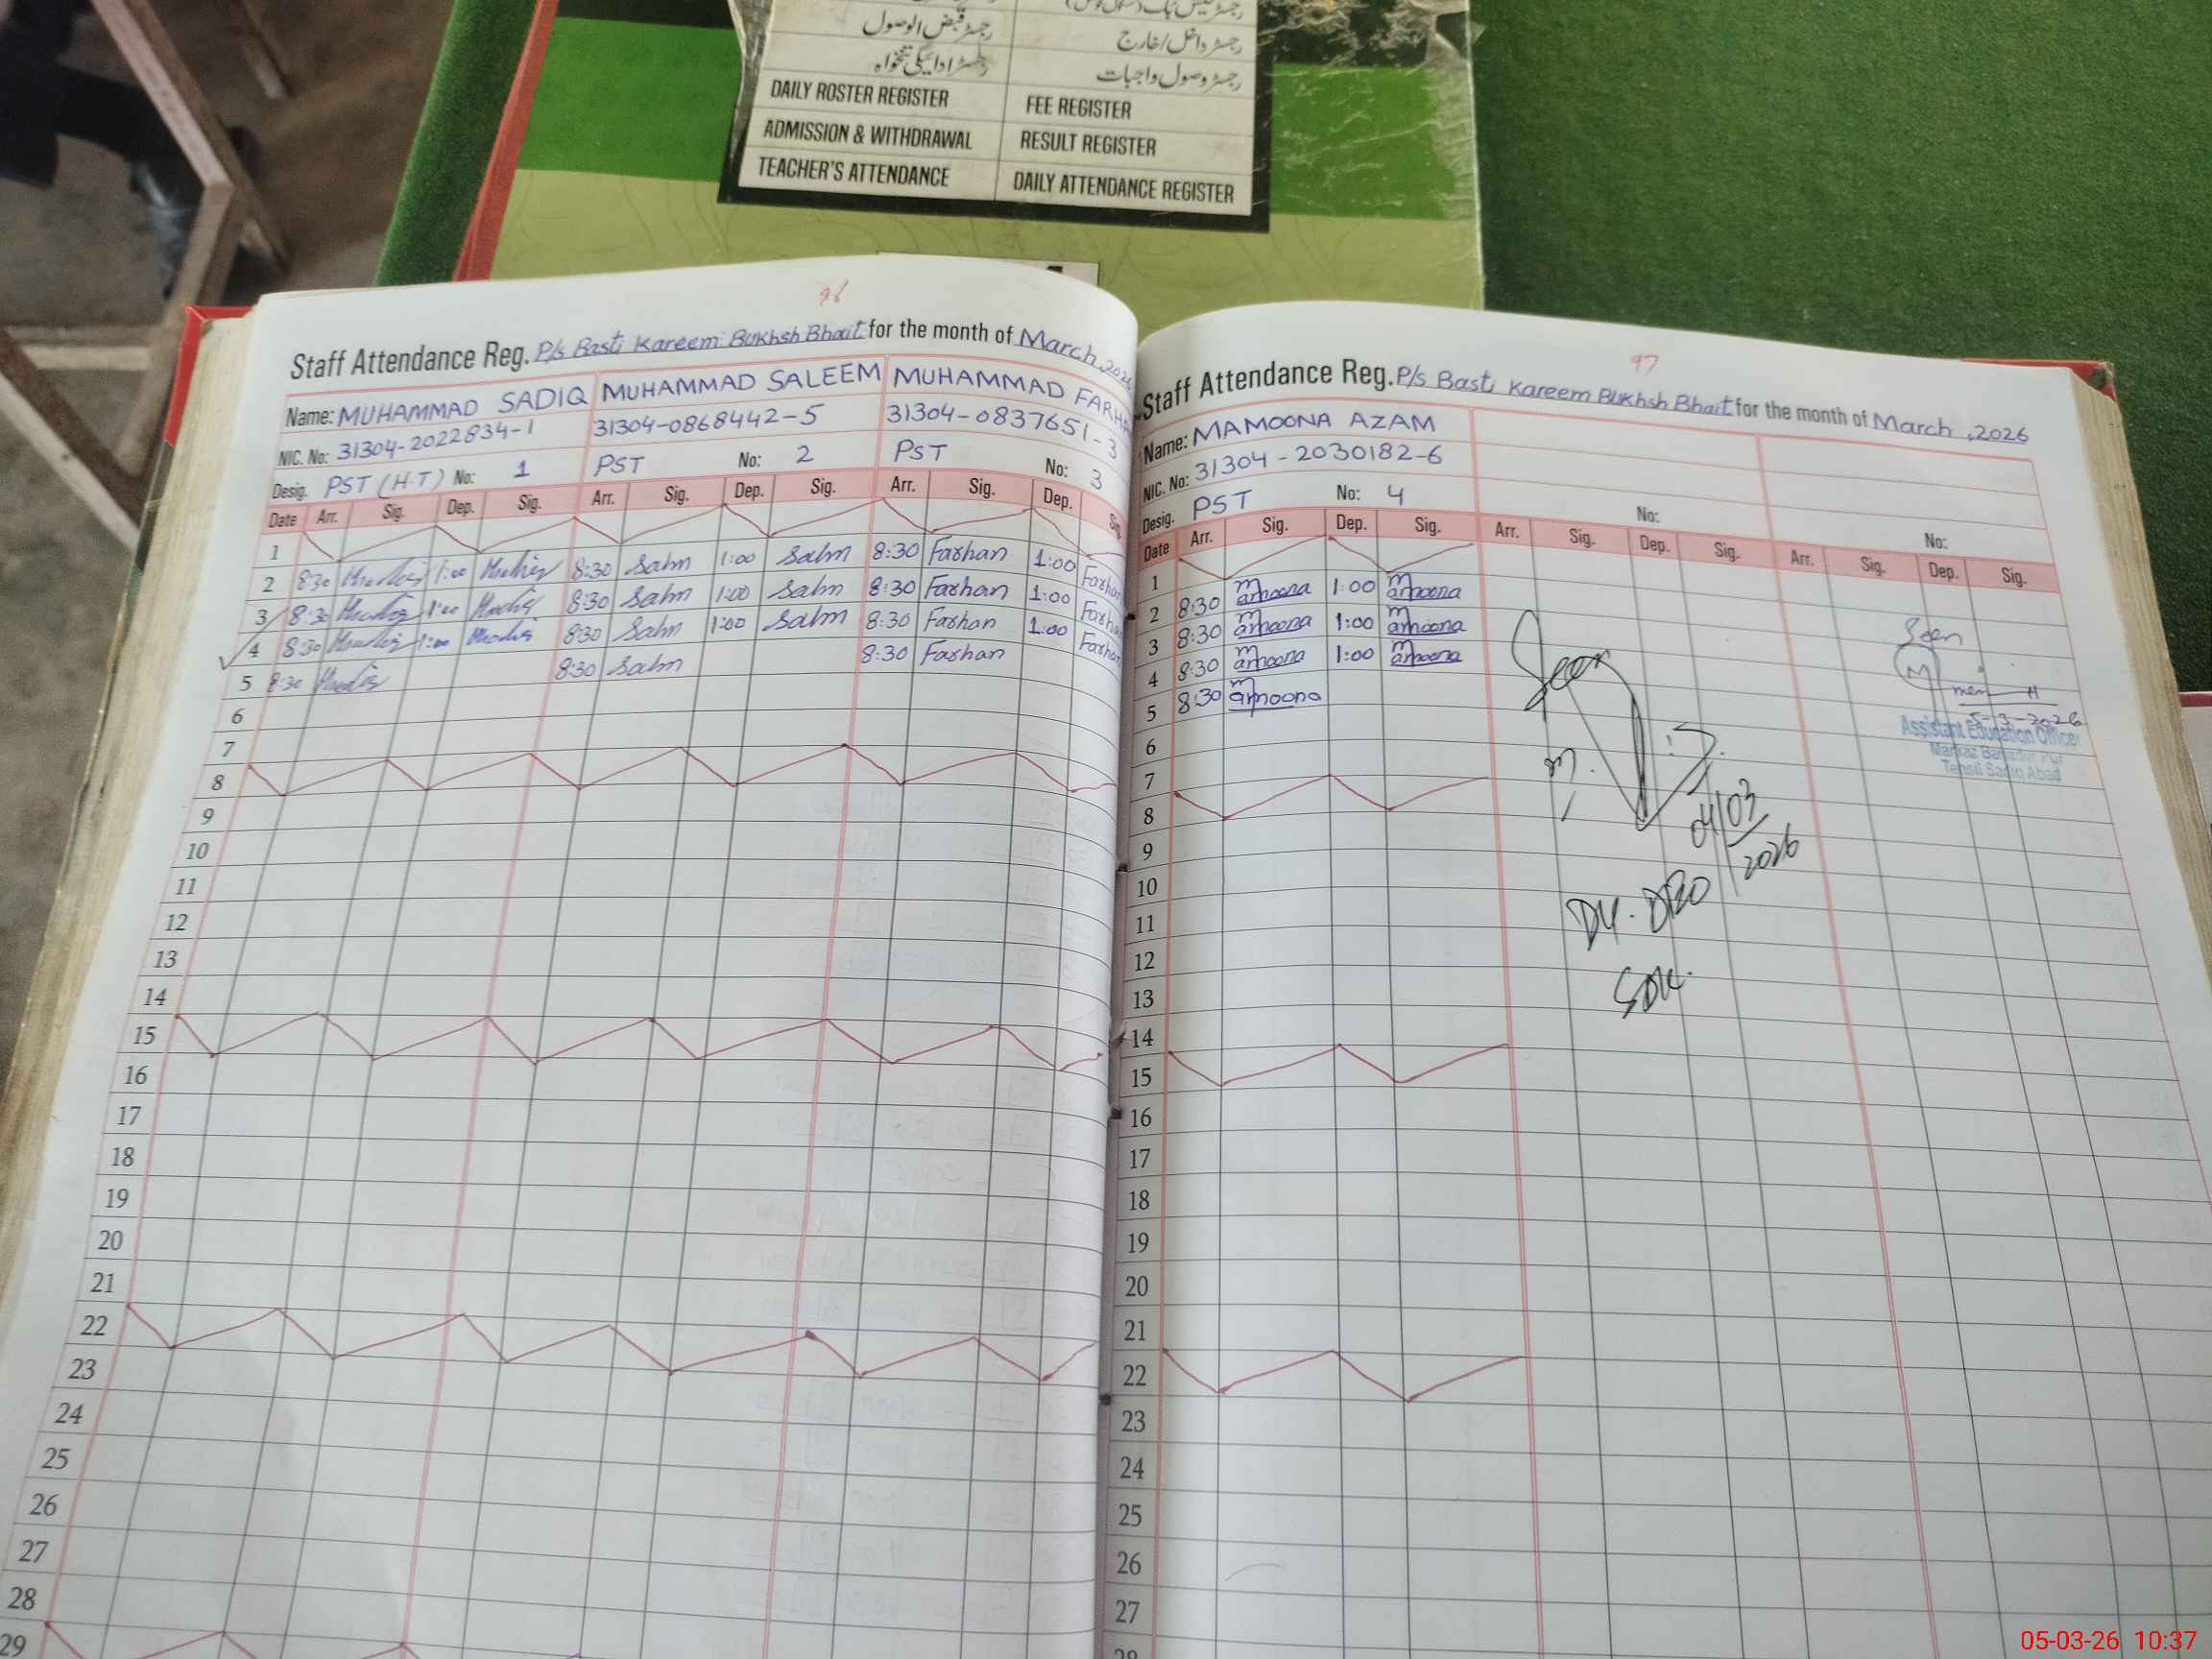 رجسٹر قبض الوصول
رجسٹر داخل/خارج
رجسٹر ادائیگی تنخواہ
رجسٹر وصول واجبات
DAILY ROSTER REGISTER FEE REGISTER
ADMISSION & WITHDRAWAL RESULT REGISTER
TEACHER'S ATTENDANCE DAILY ATTENDANCE REGISTER
96
Staff Attendance Reg. P/s Basti Kareem Bukhsh Bhait for the month of March, 2026
Name: MUHAMMAD SADIQ MUHAMMAD SALEEM MUHAMMAD FARHA
NIC. No: 31304-2022834-1 31304-0868442-5 31304-0837651-3
Desig. PST (H.T) No: 1 PST No: 2 PST No: 3
Date Arr. Sig. Dep. Sig. Arr. Sig. Dep. Sig. Arr. Sig. Dep. Sig
1
2 8:30 1:00 8:30 Salm 1:00 Salm 8:30 Farhan 1:00 Farhan
3 8:30 1:00 8:30 Salm 1:00 Salm 8:30 Farhan 1:00 Farhan
4 8:30 1:00 8:30 Salm 1:00 Salm 8:30 Farhan 1:00 Farhan
5 8:30 8:30 Salm 8:30 Farhan
6
7
8
9
10
11
12
13
14
15
16
17
18
19
20
21
22
23
24
25
26
27
28
29
97
Staff Attendance Reg. P/s Basti Kareem Bukhsh Bhait for the month of March, 2026
Name: MAMOONA AZAM
NIC. No: 31304-2030182-6
Desig. PST No: 4 No: No:
Date Arr. Sig. Dep. Sig. Arr. Sig. Dep. Sig. Arr. Sig. Dep. Sig.
1
2 8:30 mamoona 1:00 mamoona
3 8:30 mamoona 1:00 mamoona
4 8:30 mamoona 1:00 mamoona
5 8:30 mamoona
6
7
8
9
10
11
12
13
14
15
16
17
18
19
20
21
22
23
24
25
26
27
28
Seen
04/03/2026
DY. DEO
SDK.
Seen
5-3-2026
Assistant Education Officer
Markaz
Tehsil Sadiq Abad
05-03-26 10:37